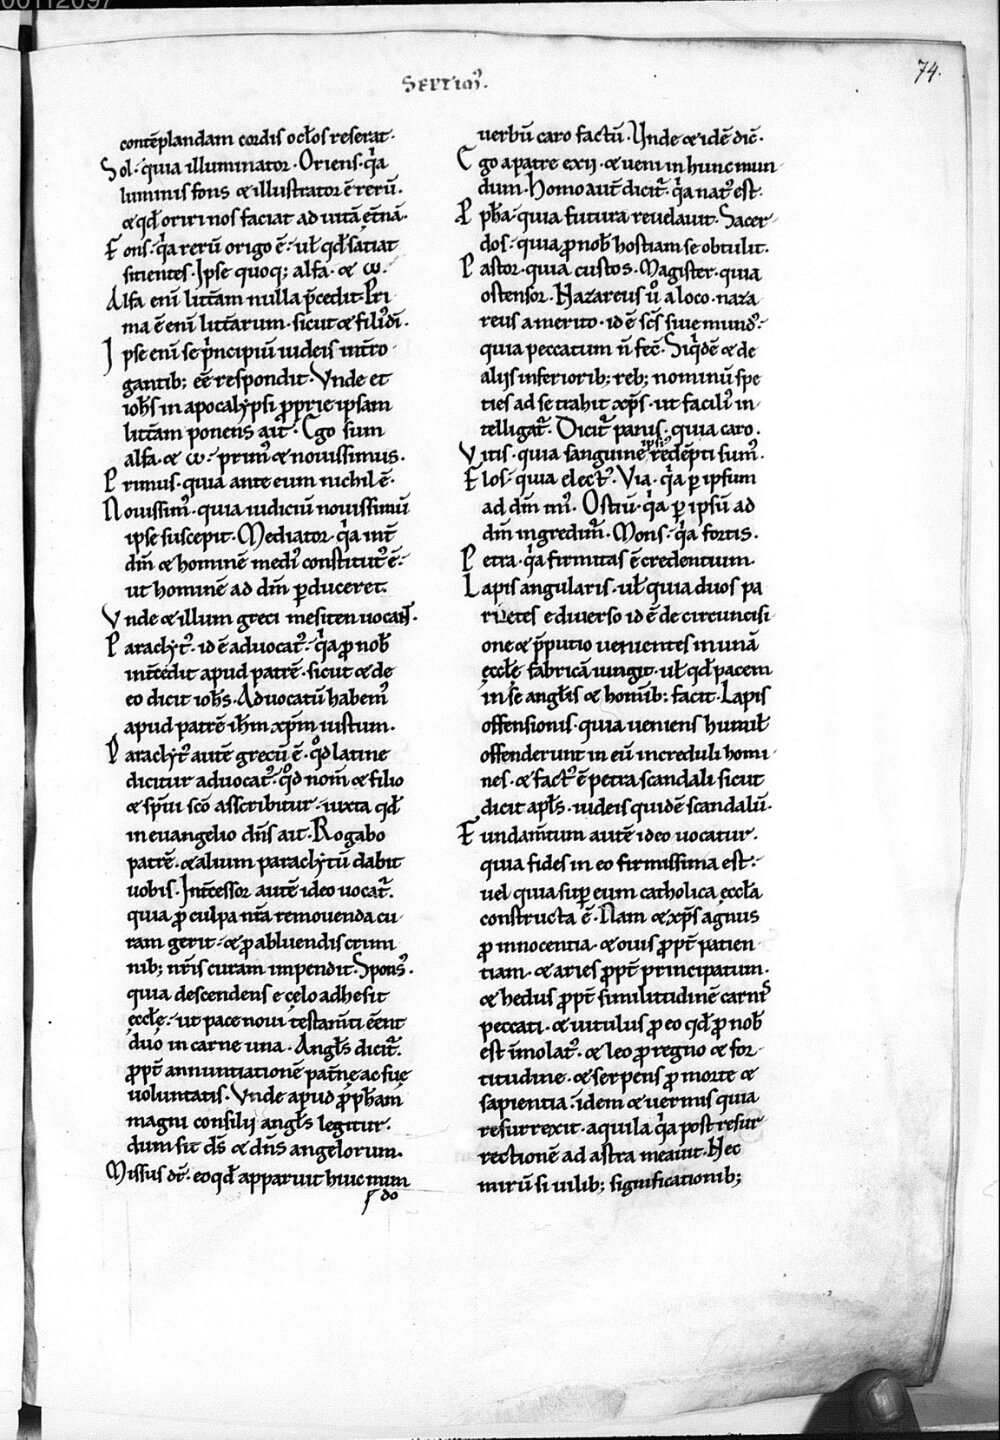 00112097
74.
SEPTIMꝰ.
contēplandam cordis ocl̄os reserat·
Sol· quia illuminator· Oriens· qͥa
luminis fons & illustrator ē rerū·
& qd̄ oriri nos faciat ad uitā et̄nā·
Fons· qͥa rerū origo ē· ul̄ qd̄ satiat
sitientes· Ipse quoq; alfa· & ω·
Alfa enī litt̄am nulla p̄cedit· Pri
ma ē enī litt̄arum· sicut & filiꝰ dī·
Ipse enī se pͥncipiū iudeis int̄ro
gantib; eē respondit· Vnde et
ioh̄s in apocalypsi ꝓprie ipsam
litt̄am ponens ait· Ego sum
alfa· & ω· primꝰ & nouissimus·
Primus· quia ante eum nichil ē·
Nouissimꝰ· quia iudiciū nouissimū
ipse suscepit· Mediator· qͥa int̄
dm̄ & hominē mediꝰ constitutꝰ ē·
ut hominē ad dm̄ ꝑduceret·
Vnde & illum greci mesiten uocant·
Paraclytꝰ· id ē aduocatꝰ· qͥa ꝓ nob̄
int̄cedit apud patrē· sicut & de
eo dicit ioh̄s· Aduocatū habemꝰ
apud patrē ih̄m xp̄m iustum·
Paraclytꝰ autē grecū ē· qͦd latine
dicitur aduocatꝰ· qͦd nom̄ & filio
& sp̄ui sc̄o asscribitur· iuxta qd̄
in euangelio dn̄s ait· Rogabo
patrē· & alium paraclytū dabit
uobis· Int̄cessor autē ideo uocat̄·
quia ꝓ culpa nr̄a remouenda cu
ram gerit· & ꝓ abluendis crimi
nib; nr̄is curam impendit· Sponsꝰ·
quia descendens e cęlo adhesit
ęccl̄ę· ut pace noui testam̄ti eēnt
duo in carne una· Angl̄s dicit̄·
ꝓpt̄ annuntiationē pat̄nę ac suę
uoluntatis· Vnde apud ꝓph̄am
magni consilii angl̄s legitur·
dum sit ds̄ & dn̄s angelorum·
Missus dr̄· eo qd̄ apparuit huic mun
do
uerbū caro factū· Vnde & idē dic̄·
Ego a patre exii· & ueni in hunc mun
dum· Homo aut̄ dicit̄· qͥa natꝰ est·
Pph̄a· quia futura reuelauit· Sacer
dos· quia ꝓ nob̄ hostiam se obtulit·
Pastor· quia custos· Magister· quia
ostensor· Nazareus uͦ a loco· naza
reus a merito· id ē sc̄s siue mundꝰ·
quia peccatum n̄ fec̄· Siqͥdē & de
aliis inferiorib; reb; nominū spe
ties ad se trahit xp̄s· ut faciliꝰ in
telligat̄· Dicit̄ panis· quia caro·
Vitis· quia sanguine ipsiꝰ redēpti sumꝰ·
Flos· quia electꝰ· Via· qͥa ꝑ ipsum
ad dm̄ imꝰ· Ostiū· qͥa ꝑ ipsū ad
dm̄ ingredim̄· Mons· qͥa fortis·
Petra· qͥa firmitas ē credentium·
Lapis angularis· ul̄ quia duos pa
rietes e diuerso id ē de circuncisi
one & p̄putio uenientes in unā
ęccl̄ę fabricā iungit· ul̄ qd̄ pacem
in se angl̄is & homīb; facit· Lapis
offensionis· quia ueniens humil̄
offenderunt in eū increduli homi
nes· & factꝰ ē petra scandali sicut
dicit apl̄s· iudeis quidē scandalū·
Fundam̄tum autē ideo uocatur·
quia fides in eo firmissima est·
uel quia suꝑ eum catholica ęccl̄a
constructa ē· Nam & xp̄s agnus
ꝓ innocentia· & ouis ꝓpt̄ patien
tiam· & aries ꝓpt̄ principatum·
& hedus ꝓpt̄ similitudinē carnis
peccati· & uitulus ꝓ eo qd̄ ꝓ nob̄
est īmolatꝰ· & leo ꝓ regno & for
titudine· & serpens ꝓ morte &
sapientia· idem & uermis quia
resurrexit· aquila qͥa post resur
rectionē ad astra meauit· Nec
mirū si uilib; significationib;